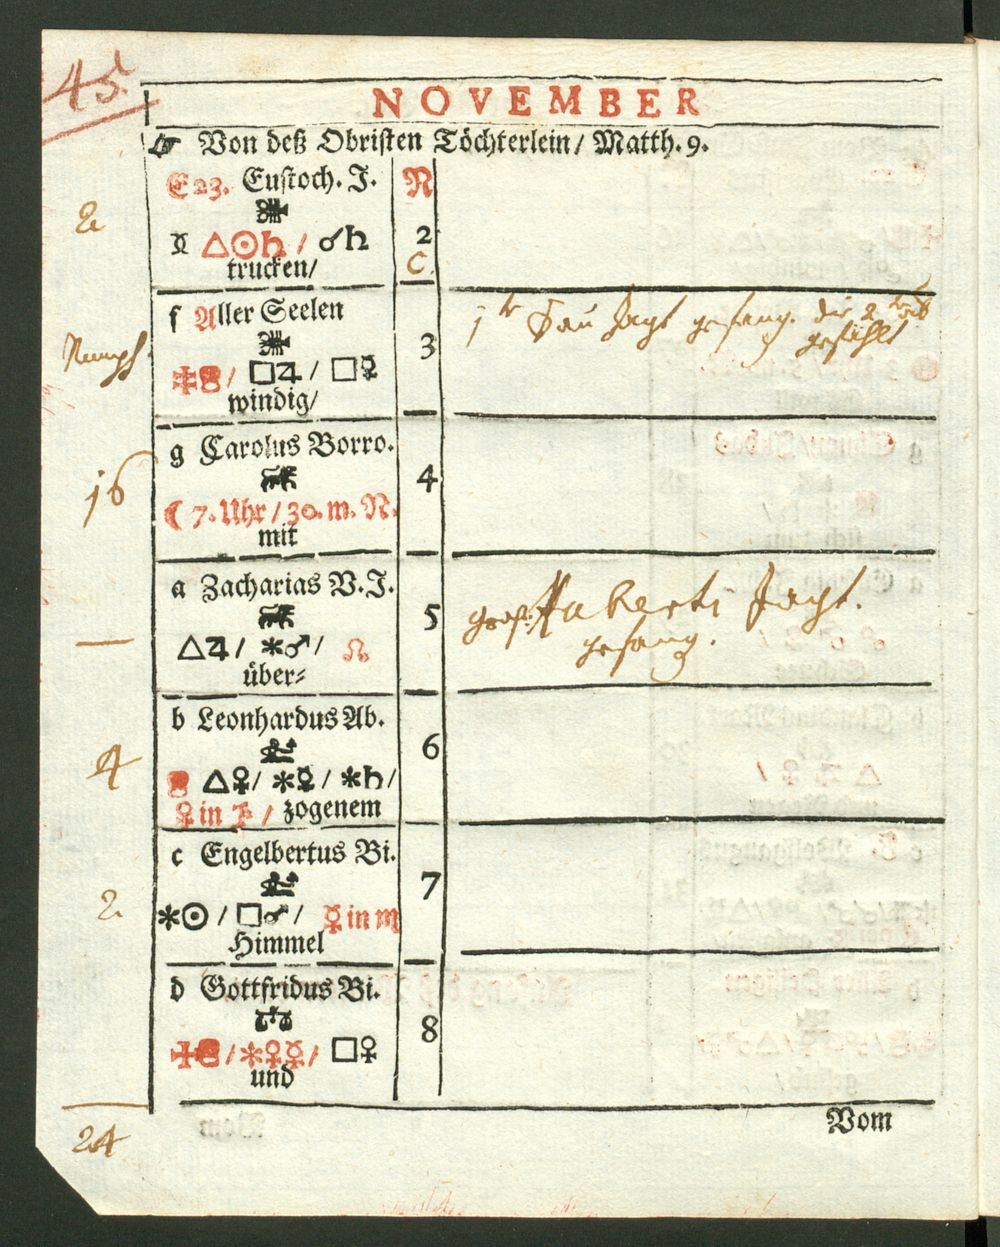 45
NOVEMBER
☞ Von deß Obristen Töchterlein/ Matth. 9.
E 23. Eustoch. J. N
2
☿ △☉♄ / ☌♄ 2
trucken/ C.
f Aller Seelen
/ □♃ / □☿ 3
windig/
jte Sau Jagt gefang. die 2te
gefählt
g Carolus Borro.
4
16
☾ 7. Uhr / 30. m. N.
mit
a Zacharias V. J.
5
△♃ / ✶♂ / ☊
über⸗
Huberti Jagt.
gefang.
b Leonhardus Ab.
6
4
△♀/ ✶☿ / ✶♄ /
♀ in ♑ / zogenem
c Engelbertus Bi.
7
2.
✶☉ / □♂ / ☿ in ♏
Himmel
d Gottfridus Bi.
8
/ ✶♀☿ / □♀
und
24
Vom